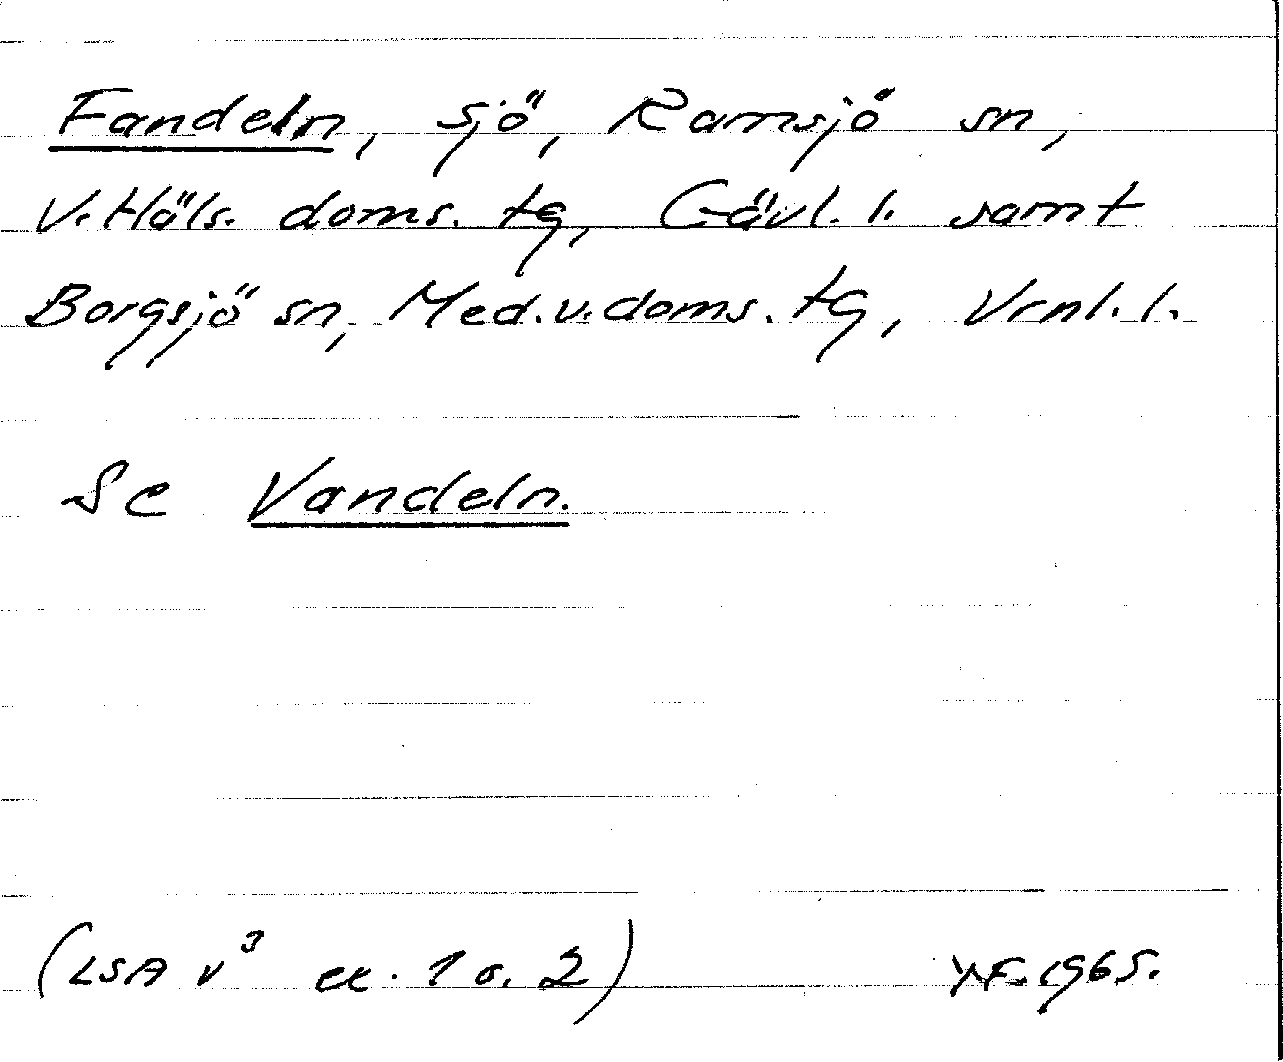 Fandeln, sjö, Ramsjö sn,
V. Häls. doms. tg, Gävl. l. samt
Borgsjö sn, Med. v. doms. tg, Vrnl. l.
Se Vandeln.
(LSA v³ ex. 1 o. 2)
1965.